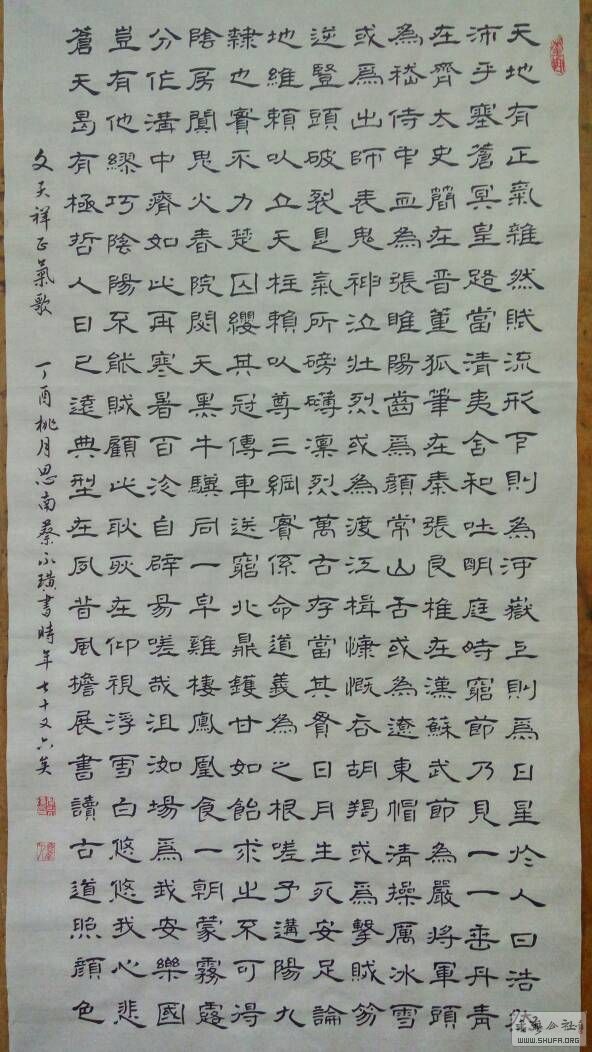 天地有正氣雜然賦流形下則為河嶽上則爲日星於人曰浩然
沛乎塞蒼冥皇路當清夷含和吐明庭時窮節乃見一一垂丹青
在齊太史簡在晉董狐筆在秦張良椎在漢蘇武節為嚴將軍頭
為嵇侍中血為張睢陽齒爲顏常山舌或為遼東帽清操厲冰雪
或爲出師表鬼神泣壯烈或為渡江楫慷慨吞胡羯或爲擊賊笏
逆豎頭破裂是氣所磅礴凜烈萬古存當其貫日月生死安足論
地維賴以立天柱賴以尊三綱實係命道義為之根嗟予遘陽九
隸也實不力楚囚纓其冠傳車送窮北鼎鑊甘如飴求之不可得
陰房闃鬼火春院閟天黑牛驥同一皁雞棲鳳凰食一朝蒙霧露
分作溝中瘠如此再寒暑百沴自辟易嗟哉沮洳場爲我安樂國
豈有他繆巧陰陽不能賊顧此耿耿在仰視浮雲白悠悠我心悲
蒼天曷有極哲人日已遠典型在夙昔風檐展書讀古道照顏色
文天祥正氣歌 丁酉桃月思南蔡永璜書時年七十又六矣
WWW.SHUFA.ORG